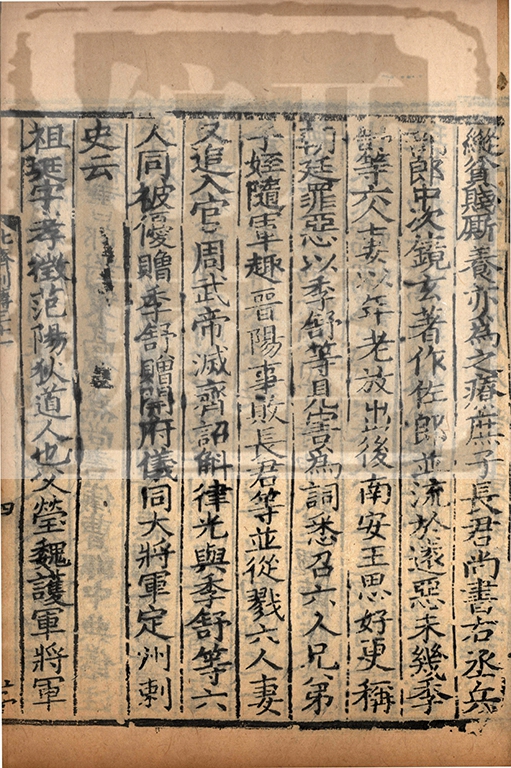 縱貧賤廝養亦為之療庶子長君尚書右丞兵
部郎中次鏡玄著作佐郎並流於遠惡未幾季
舒等六人妻以年老放出後南安王思好更稱
朝廷罪惡以季舒等見害為詞悉召六人兄弟
子姪隨軍趣晉陽事敗長君等並從戮六人妻
又追入官周武帝滅齊詔斛律光與季舒等六
人同被優贈季舒贈開府儀同大將軍定州刺
史云
祖珽字孝徵范陽狄道人也父瑩魏護軍將軍
四